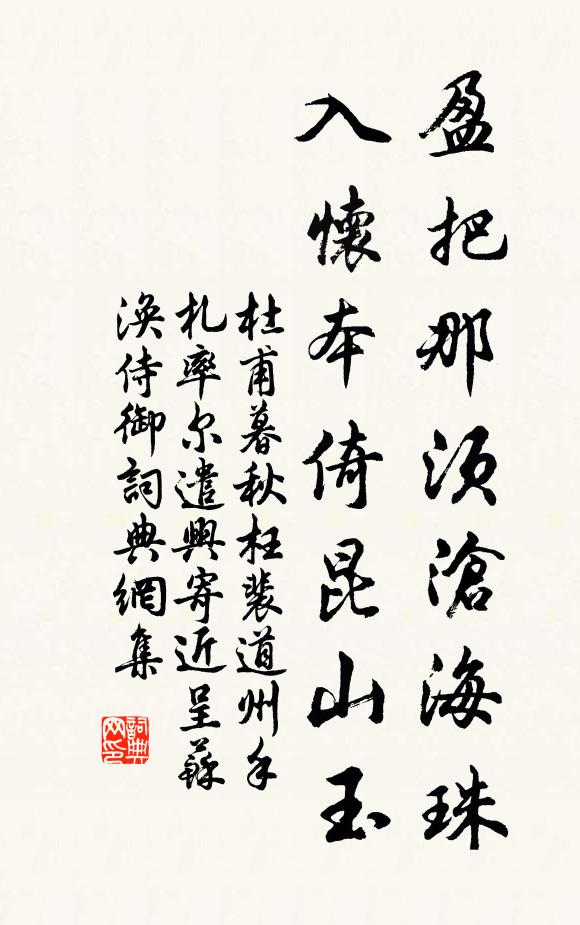 盈把那須滄海珠
入懷本倚昆山玉
杜甫暮秋枉裴道州手
札率尔遣興寄近呈蘇
渙侍御詞典網集
詞典網印